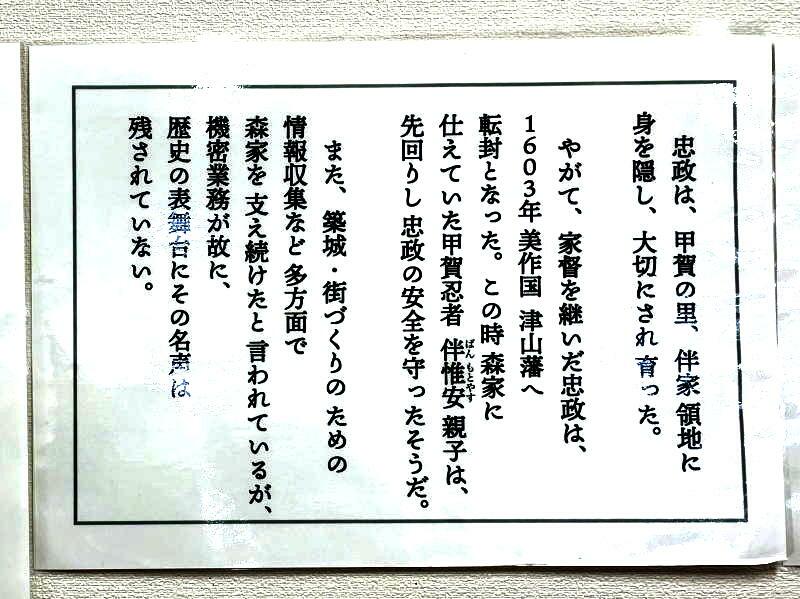 忠政は、甲賀の里、伴家 領地に
身を隠し、大切にされ 育った。
やがて、家督を継いだ忠政は、
1603年 美作国 津山藩へ
転封となった。この時 森家に
仕えていた甲賀忍者 伴惟安 親子は、
ばん もとやす
先回りし 忠政の安全を守ったそうだ。
また、築城・街づくりのための
情報収集など 多方面で
森家を 支え続けたと 言われているが、
機密業務が故に、
歴史の表舞台にその名声は
残されていない。